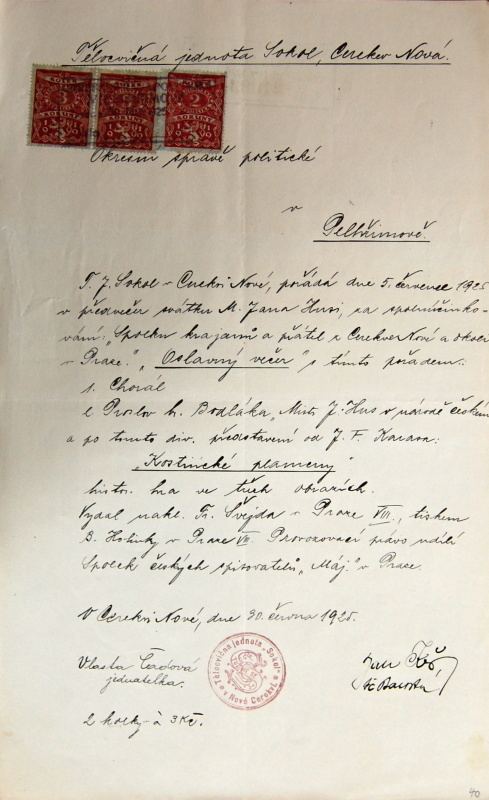 Tělocvičná jednota Sokol, Cerekev Nová.
KOLEK
3
2
KORUNY
1919
Okresní správě politické
v
Pelhřimově.
T. J. Sokol v Cerekvi Nové, pořádá dne 5. července 1925
v předvečer svátku M. Jana Husi, za spoluúčinko-
vání: „Spolku krajanů a přátel z Cerekve Nové a okolí
v Praze." „Oslavný večer" s tímto pořadem:
1. Chorál
2. Proslov b. Bodláka „Mistr J. Hus v národě českém
a po tomto div. představení od J. F. Karasa:
„Kostnické plameny"
histor. hra ve třech obrazích.
Vydal nakl. Fr. Švejda v Praze VIII., tiskem
B. Holinky v Praze VII. Provozovací právo udílí
Spolek českých spisovatelů „Máj" v Praze.
V Cerekvi Nové, dne 30. června 1925.
Vlasta Čadová
jednatelka.
Tělocvičná jednota „Sokol" v Nové Cerekvi
2 kolky à 3 Kč.
40